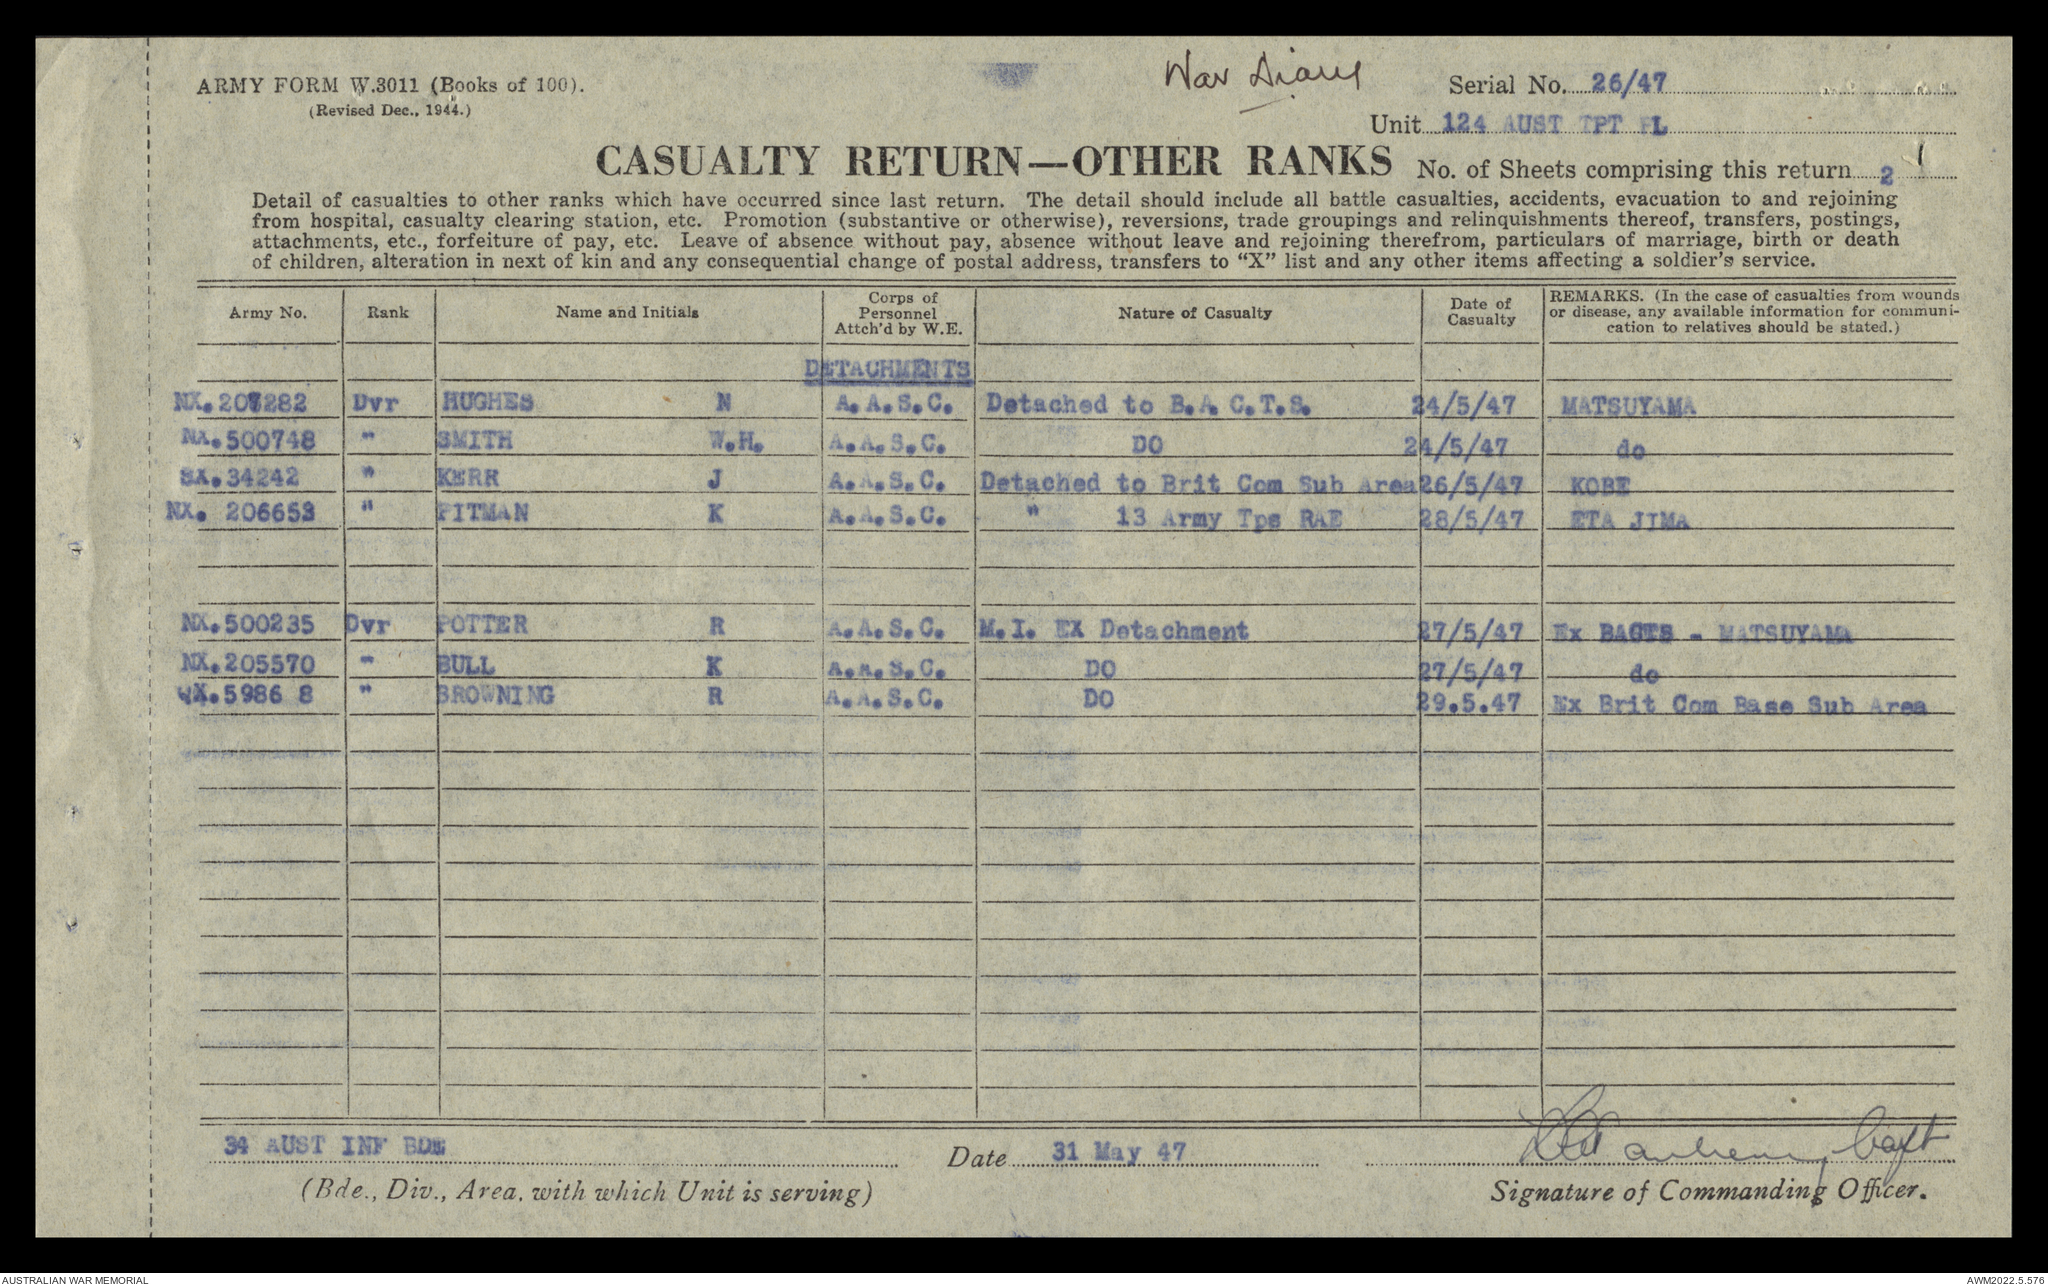 War Diary
ARMY FORM W.3011 (Books of 100).
(Revised Dec., 1944.)
Serial No. 26/47
Unit 124 AUST TPT PL
CASUALTY RETURN—OTHER RANKS
No. of Sheets comprising this return 2 1
Detail of casualties to other ranks which have occurred since last return. The detail should include all battle casualties, accidents, evacuation to and rejoining
from hospital, casualty clearing station, etc. Promotion (substantive or otherwise), reversions, trade groupings and relinquishments thereof, transfers, postings,
attachments, etc., forfeiture of pay, etc. Leave of absence without pay, absence without leave and rejoining therefrom, particulars of marriage, birth or death
of children, alteration in next of kin and any consequential change of postal address, transfers to “X” list and any other items affecting a soldier’s service.
Army No. Rank Name and Initials Corps of Personnel Attch’d by W.E. Nature of Casualty Date of Casualty REMARKS. (In the case of casualties from wounds or disease, any available information for communi-cation to relatives should be stated.)
DETACHMENTS
NX.207282 Dvr HUGHES N A.A.S.C. Detached to B.A.C.T.S. 24/5/47 MATSUYAMA
NX.500748 " SMITH W.H. A.A.S.C. DO 24/5/47 do
SX.34242 " KERR J A.A.S.C. Detached to Brit Com Sub Area 26/5/47 KOBE
NX. 206653 " PITMAN K A.A.S.C. " 13 Army Tps RAE 28/5/47 ETA JIMA
NX.500235 Dvr POTTER R A.A.S.C. M.I. EX Detachment 27/5/47 Ex BACTS - MATSUYAMA
NX.205570 " BULL K A.A.S.C. DO 27/5/47 do
5986 8 " BROWNING R A.A.S.C. DO 29.5.47 Ex Brit Com Base Sub Area
34 AUST INF BDE
Date 31 May 47
Capt
(Bde., Div., Area, with which Unit is serving)
Signature of Commanding Officer.
AUSTRALIAN WAR MEMORIAL
AWM2022.5.576